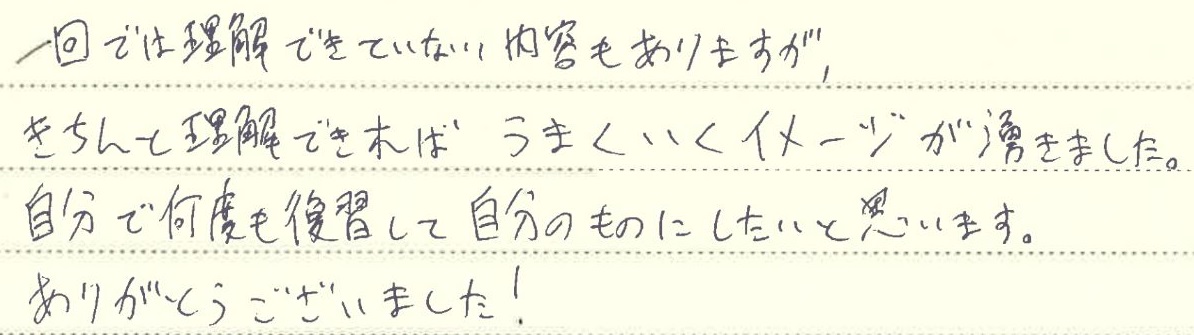 一回では理解できていない内容もありますが、
きちんと理解できれば うまくいくイメージが湧きました。
自分で何度も復習して自分のものにしたいと思います。
ありがとうございました!